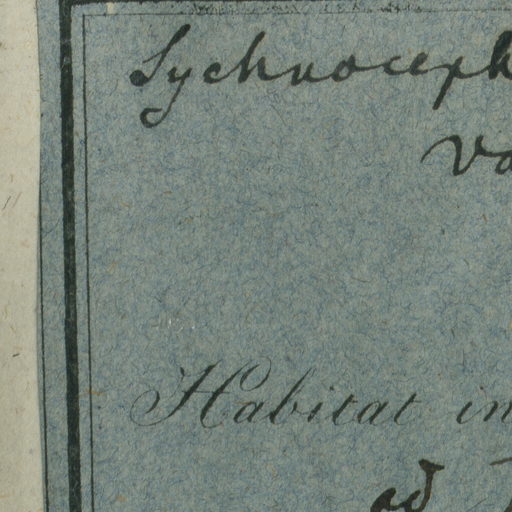 Lychnoceph
va
Habitat in
ad